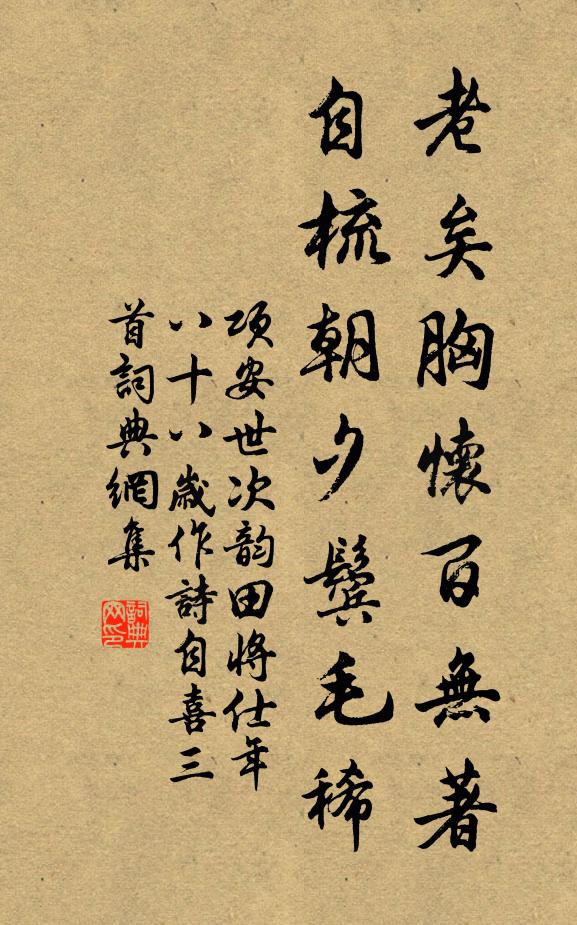 老矣胸懷百無著
自梳朝夕鬢毛稀
項安世次韵田將仕年
八十八歲作詩自喜三
首詞典網集
詞典网印